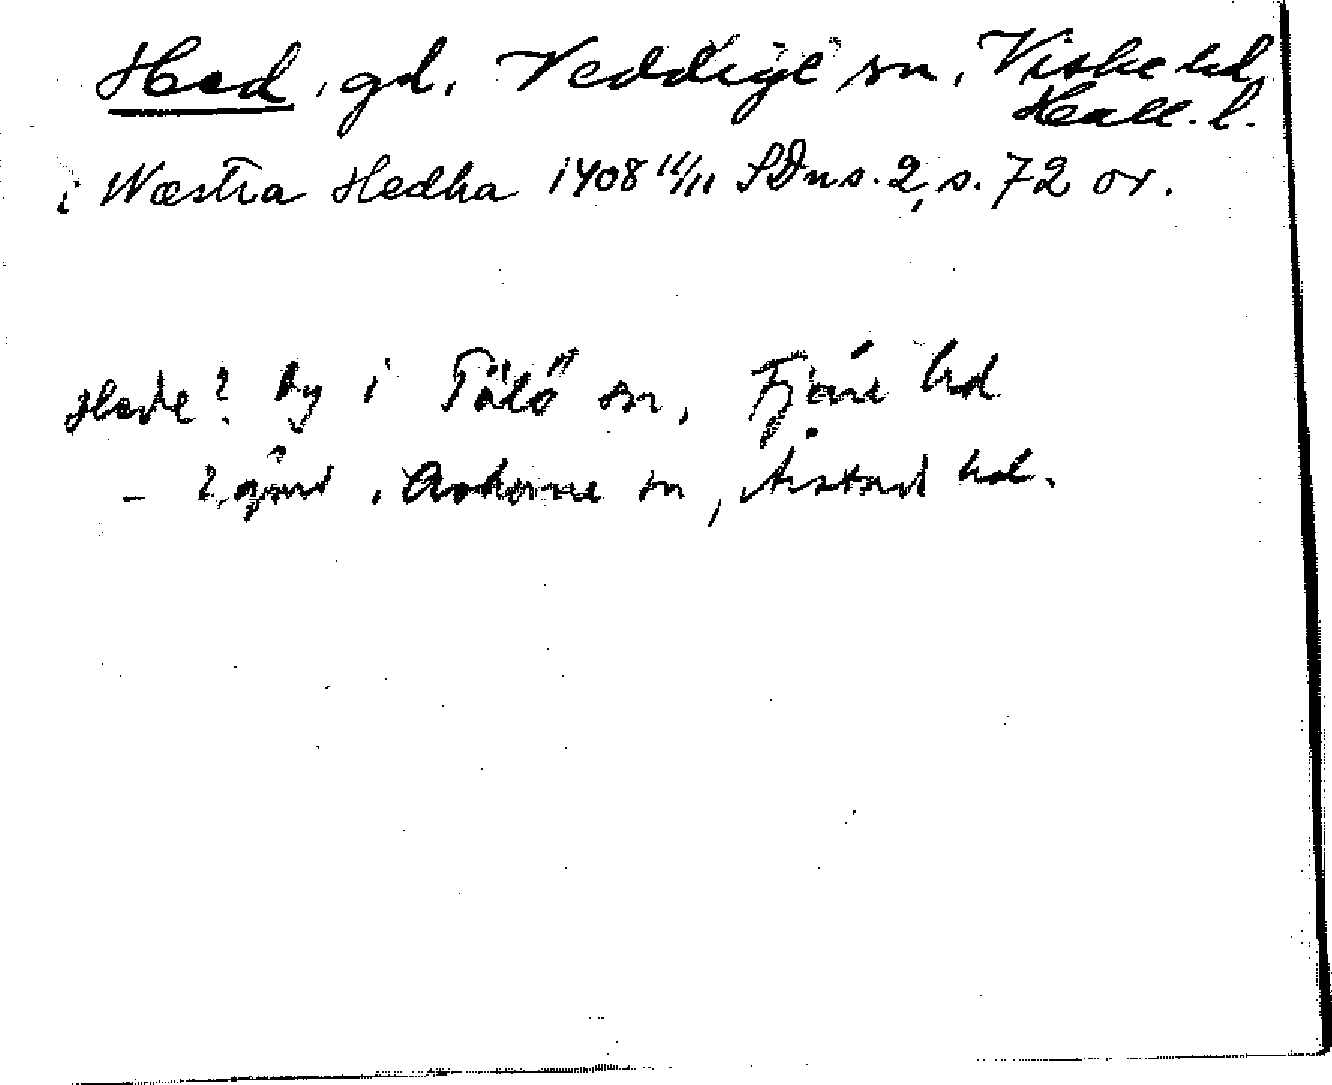 Hed, gd, Veddige sn, Viske hd,
Hall. l.
i Wæstra Hedha 1408 11/11 SDns. 2, s. 72 or.
Hede? by i Tölö sn, Fjäre hd
- ? gård i Askome sn, Årstad hd.